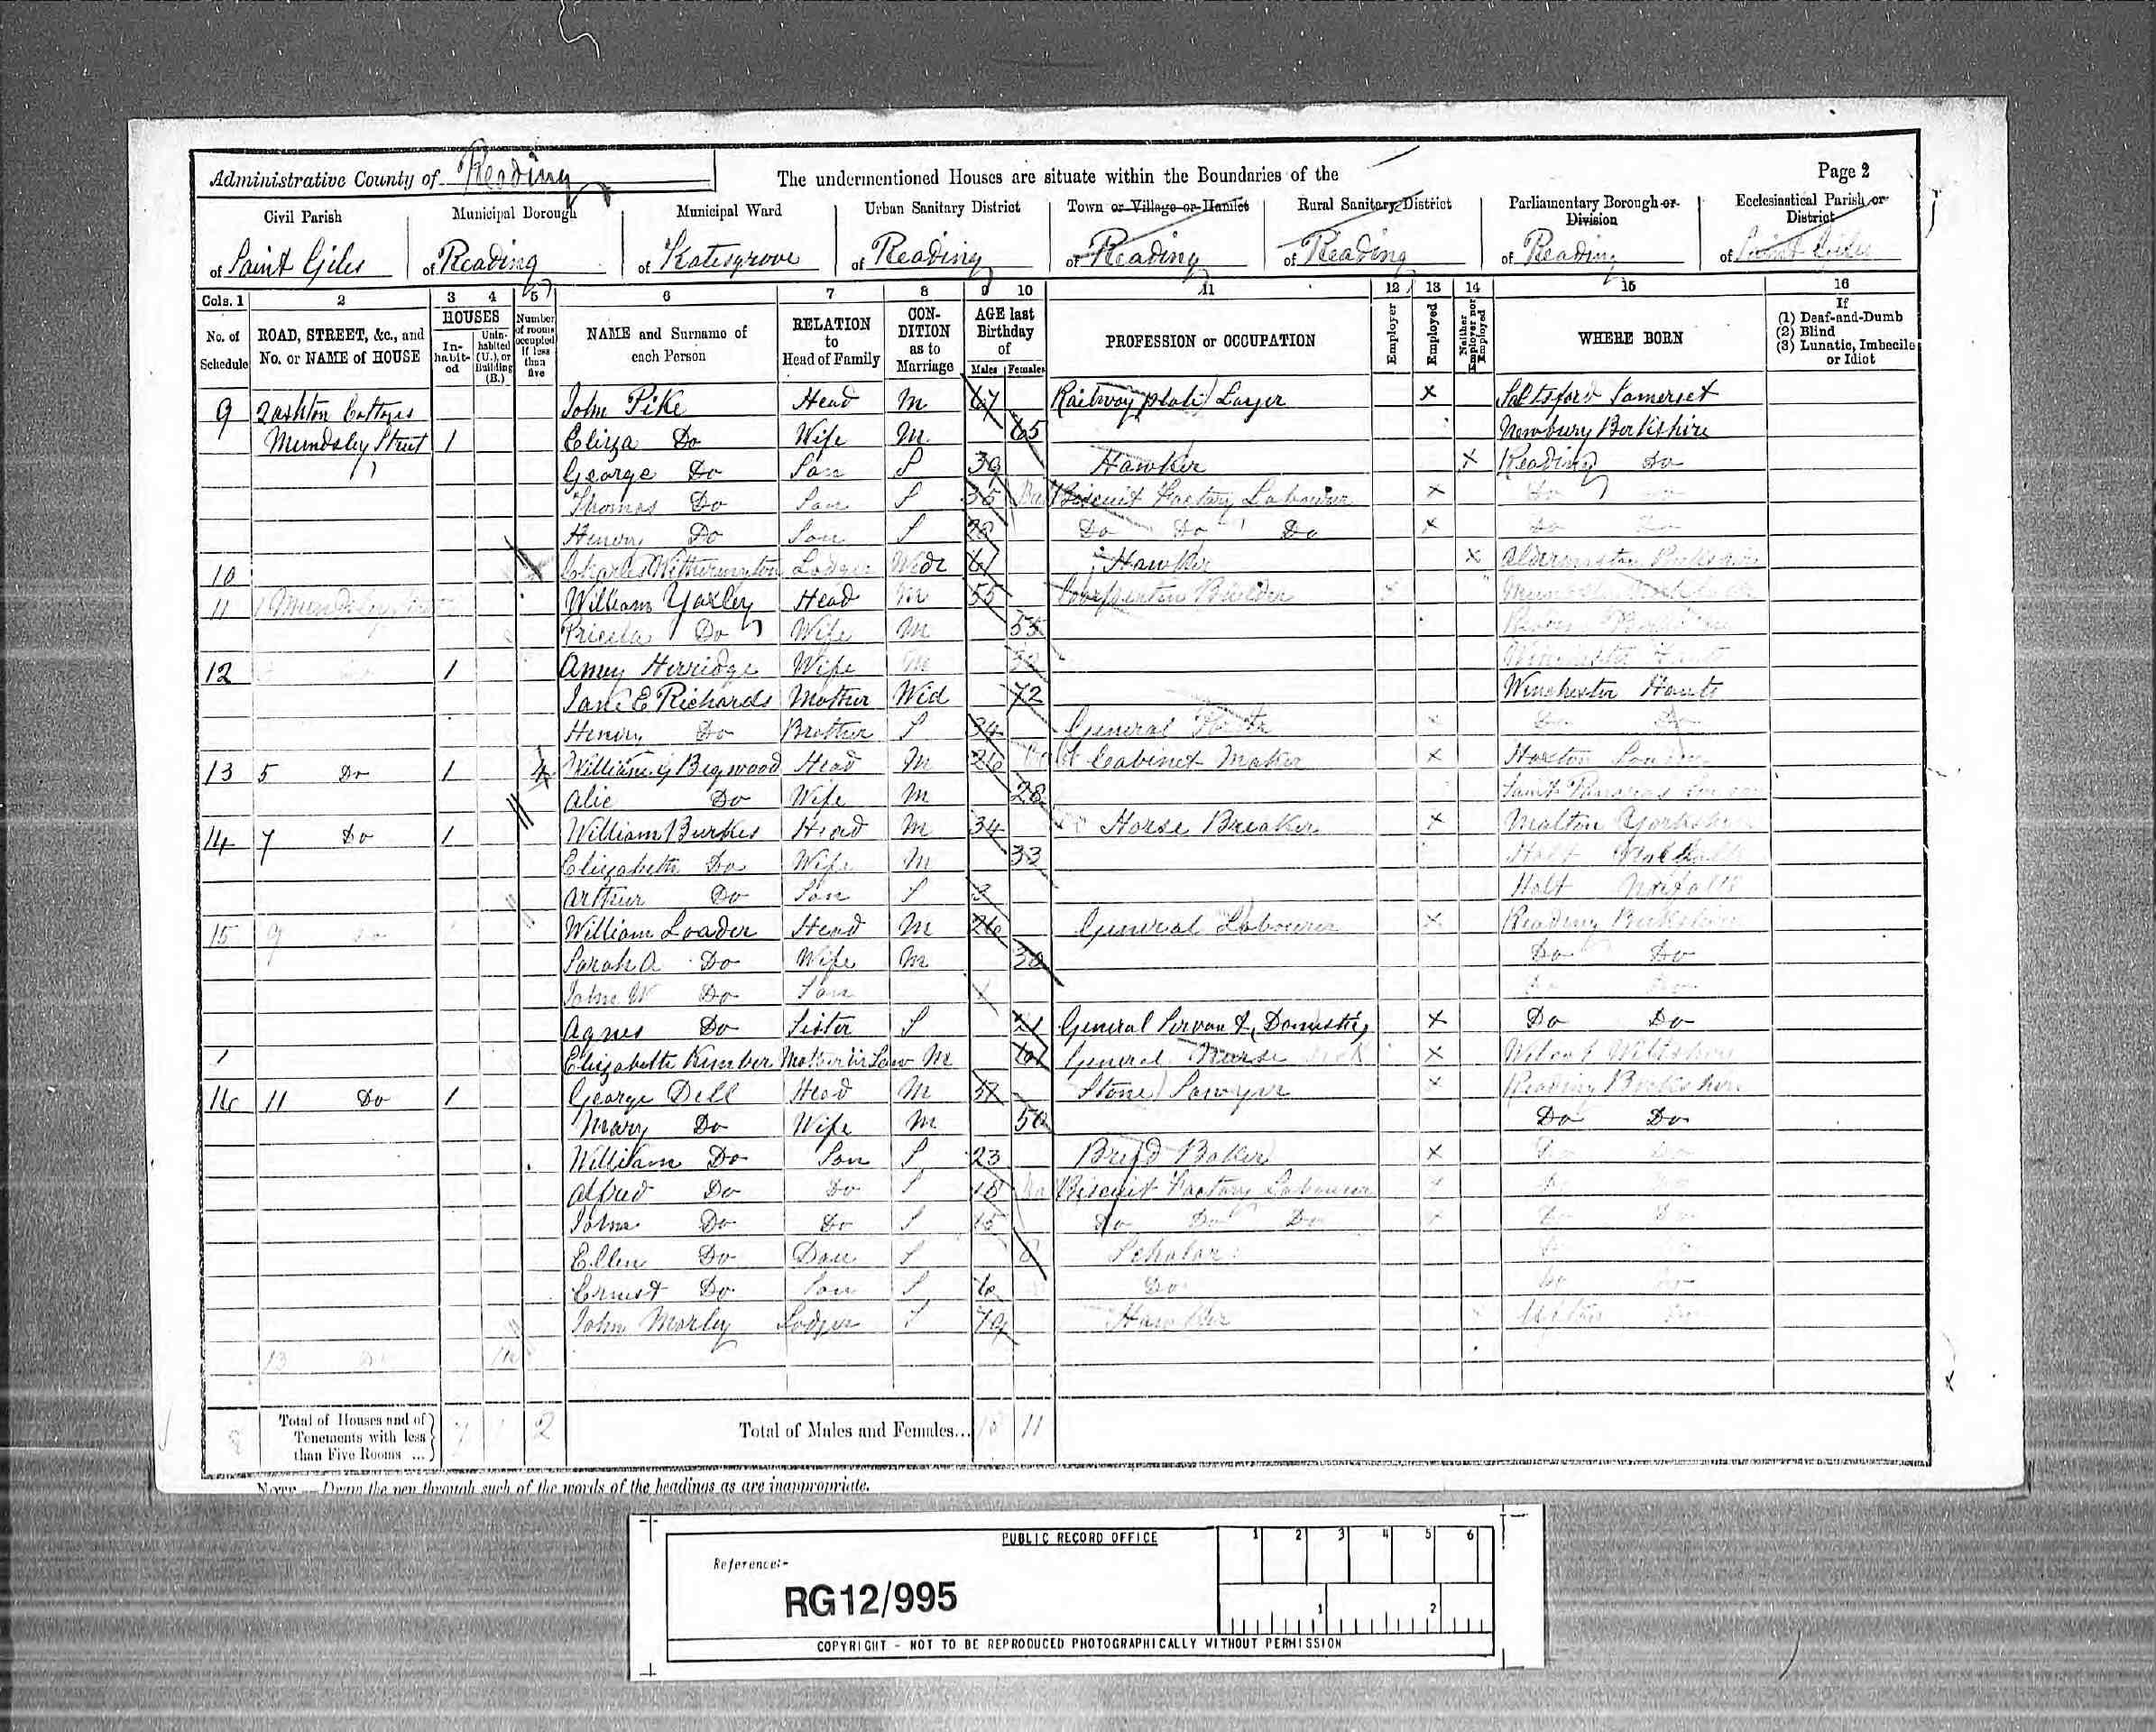 Administrative County of Reading
The undermentioned Houses are situate within the Boundaries of the
Page 2
Civil Parish
Municipal Borough
Municipal Ward
Urban Sanitary District
Town or Village or Hamlet
Rural Sanitary District
Parliamentary Borough or Division
Ecclesiastical Parish or District
of Saint Giles
of Reading
of Katesgrove
of Reading
of Reading
of Reading
of Reading
of Saint Giles
Cols. 1 2 3 4 5 6 7 8 9 10 11 12 13 14 15 16
No. of Schedule
ROAD, STREET, &c., and No. or NAME of HOUSE
HOUSES
In-habit-ed
Unin-habited (U.), or Building (B.)
Number of rooms occupied if less than five
NAME and Surname of each Person
RELATION to Head of Family
CON-DITION as to Marriage
AGE last Birthday of
Males Females
PROFESSION or OCCUPATION
Employer
Employed
Neither Employer nor Employed
WHERE BORN
If
(1) Deaf-and-Dumb
(2) Blind
(3) Lunatic, Imbecile or Idiot
9 2 Ashton Cottages John Pike Head M 67 Railway plate Layer X Saltsford Somerset
Mundsley Street 1 Eliza Do Wife M 65 Newbury Berkshire
George Do Son S 39 Hawker X Reading Do
Thomas Do Son S 35 Biscuit Factory Labourer X Do Do
Henry Do Son S 28 Do Do Do X Do Do
10 Charles Witherington Lodger Widr 61 Hawker X Aldermaston Berkshire
11 1 Mundsley Street William Yaxley Head M 55 Carpenter Builder
Pricela Do Wife M 55
12 1 Amy Herridge Wife M Winchester Hants
Jane E Richards Mother Wid 72 Winchester Hants
Henry Do Brother S 34 General X Do Do
13 5 Do 1 4 William G Begwood Head M 26 Cabinet Maker X Hoxton London
Alic Do Wife M 28 Saint Pancras London
14 7 Do 1 William Burkes Head M 34 Horse Breaker X Malton Yorkshire
Elizabeth Do Wife M 33 Holt Norfolk
Arthur Do Son S 3 Holt Norfolk
15 9 Do William Loader Head M 26 General Labourer X Reading Berkshire
Sarah A Do Wife M 30 Do Do
John W Do Son 1 Do Do
Agnes Do Sister S 21 General Servant, Domestic X Do Do
Elizabeth Kimber Mother in Law M 61 General Nurse X Wilcot Wiltshire
16 11 Do 1 George Dell Head M 51 Stone Sawyer X Reading Berkshire
Mary Do Wife M 50 Do Do
William Do Son S 23 Bread Baker X Do Do
Alfred Do Do S 18 Biscuit Factory Labourer X Do Do
John Do Do S 15 Do Do Do X Do Do
Ellen Do Dau S 8 Scholar
Ernest Do Son S 6 Do Do Do
John Morley Lodger S 79 Hawker Do
13 Do
8 Total of Houses and of Tenements with less than Five Rooms ... 7 1 2 Total of Males and Females... 18 11
NOTE.—Draw the pen through such of the words of the headings as are inappropriate.
PUBLIC RECORD OFFICE
1 2 3 4 5 6
Reference:-
RG12/995
1 2
COPYRIGHT - NOT TO BE REPRODUCED PHOTOGRAPHICALLY WITHOUT PERMISSION